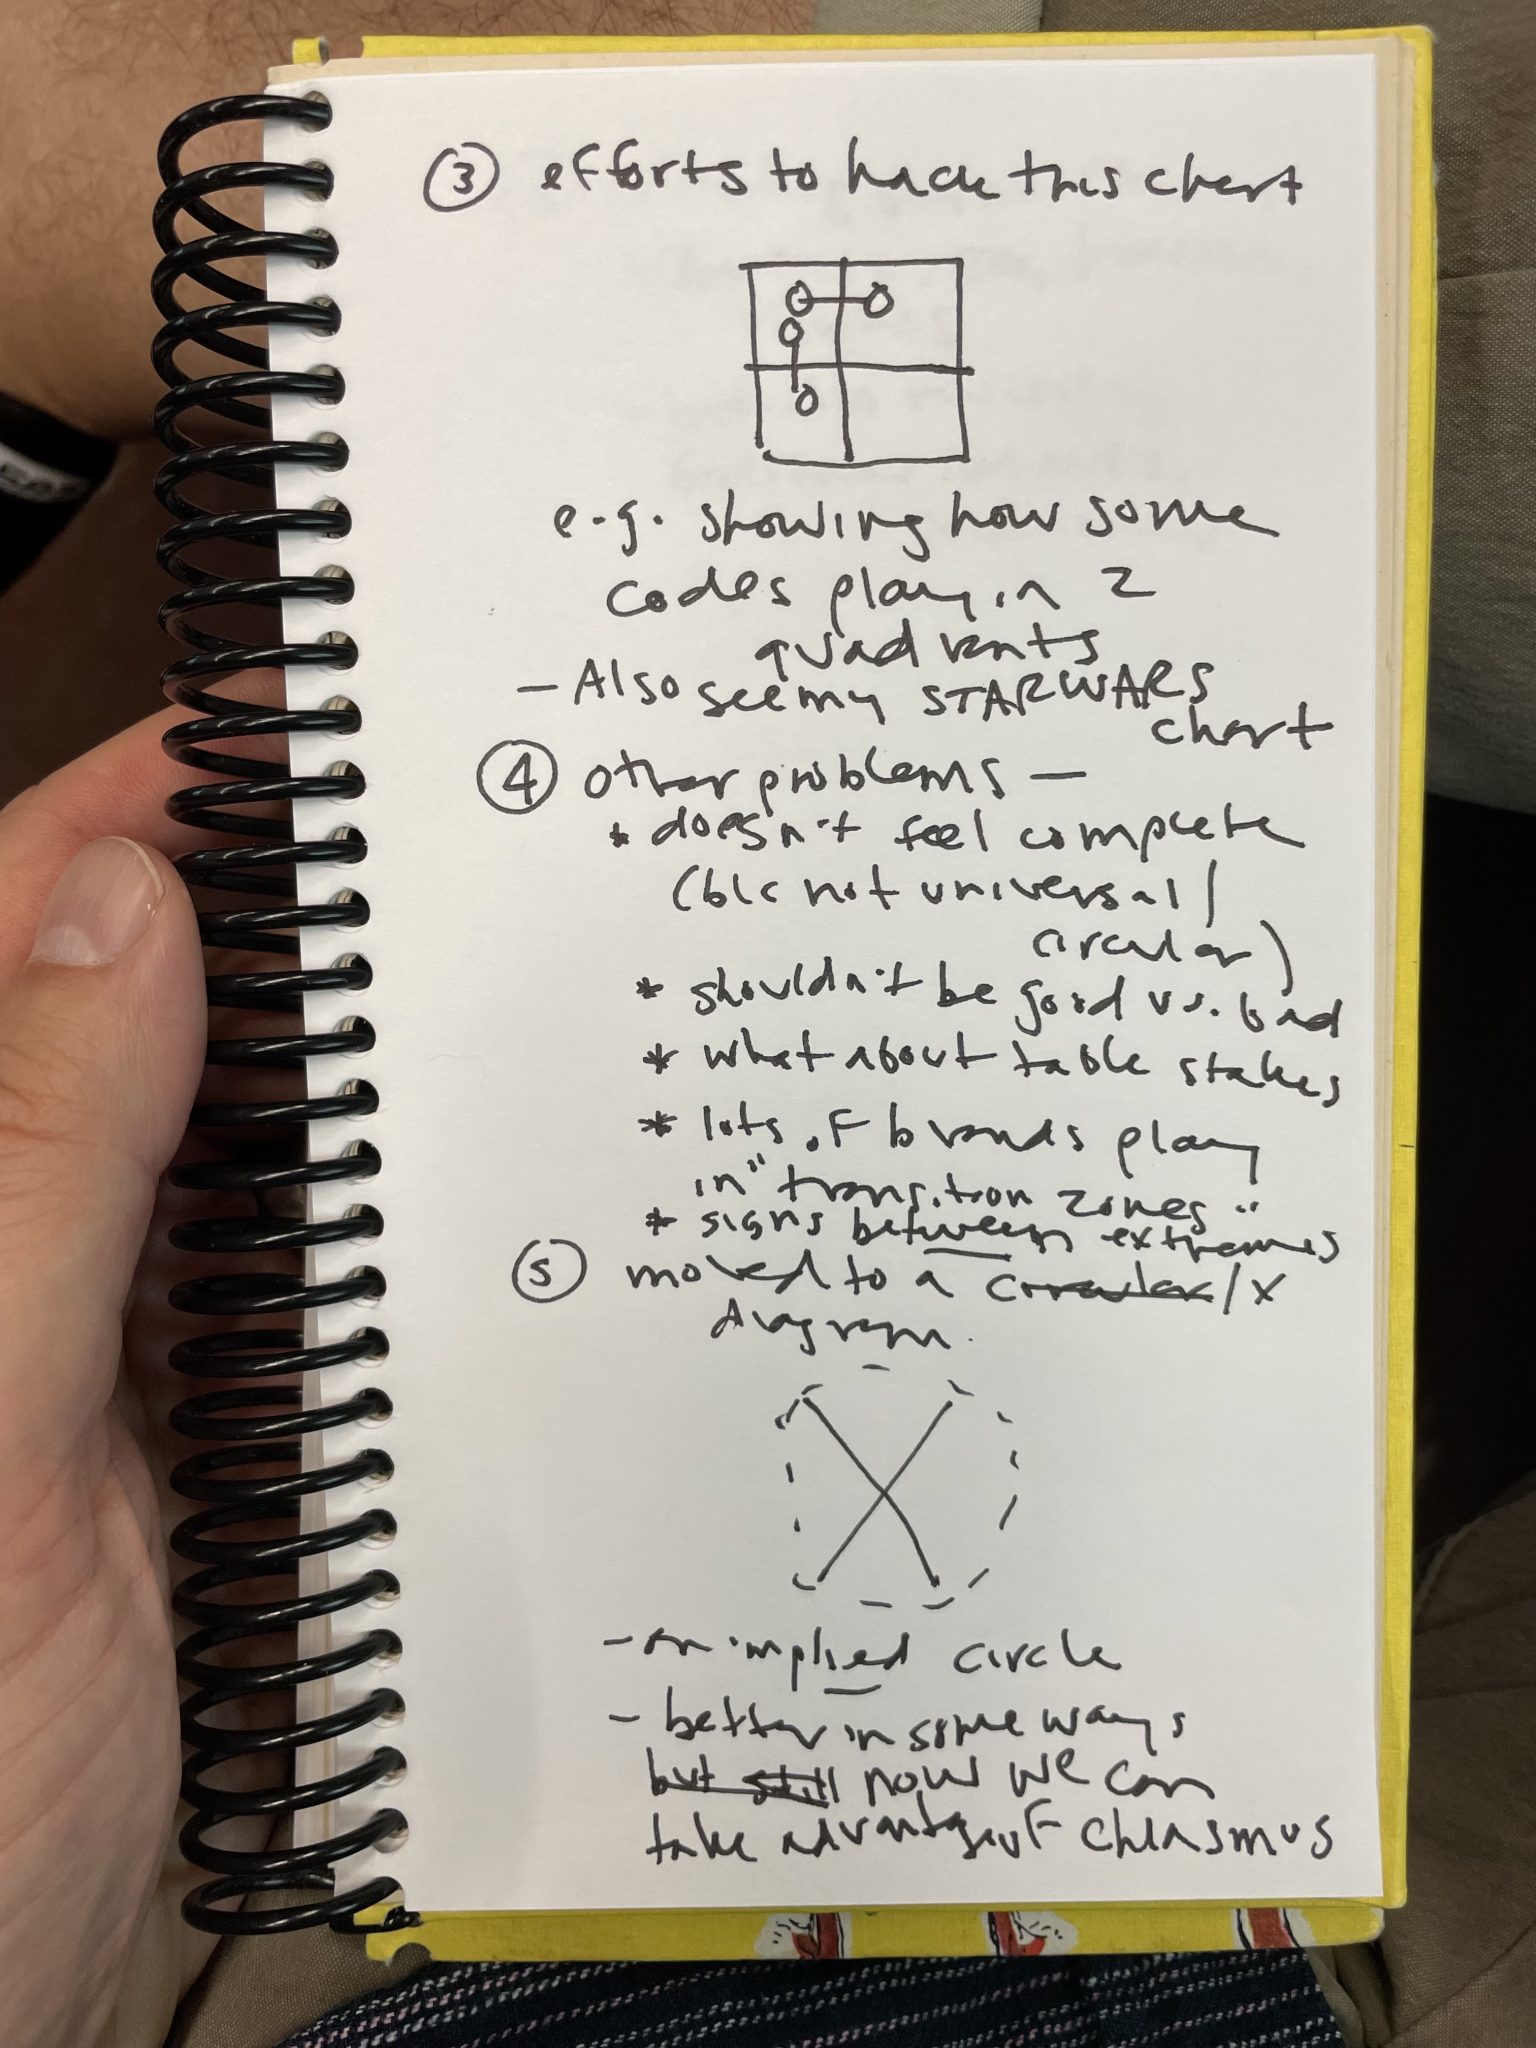 ③ efforts to hack this chart
e.g. showing how some
codes play in 2
quadrants
- Also see my STARWARS
chart
④ other problems -
* doesn't feel complete
(b/c not universal/
circular)
* shouldn't be good vs. bad
* what about table stakes
* lots of brands play
in "transition zones"
* signs between extremes
⑤ moved to a circular/X
diagram.
- an implied circle
- better in some ways
but still now we can
take advantage of chiasmus